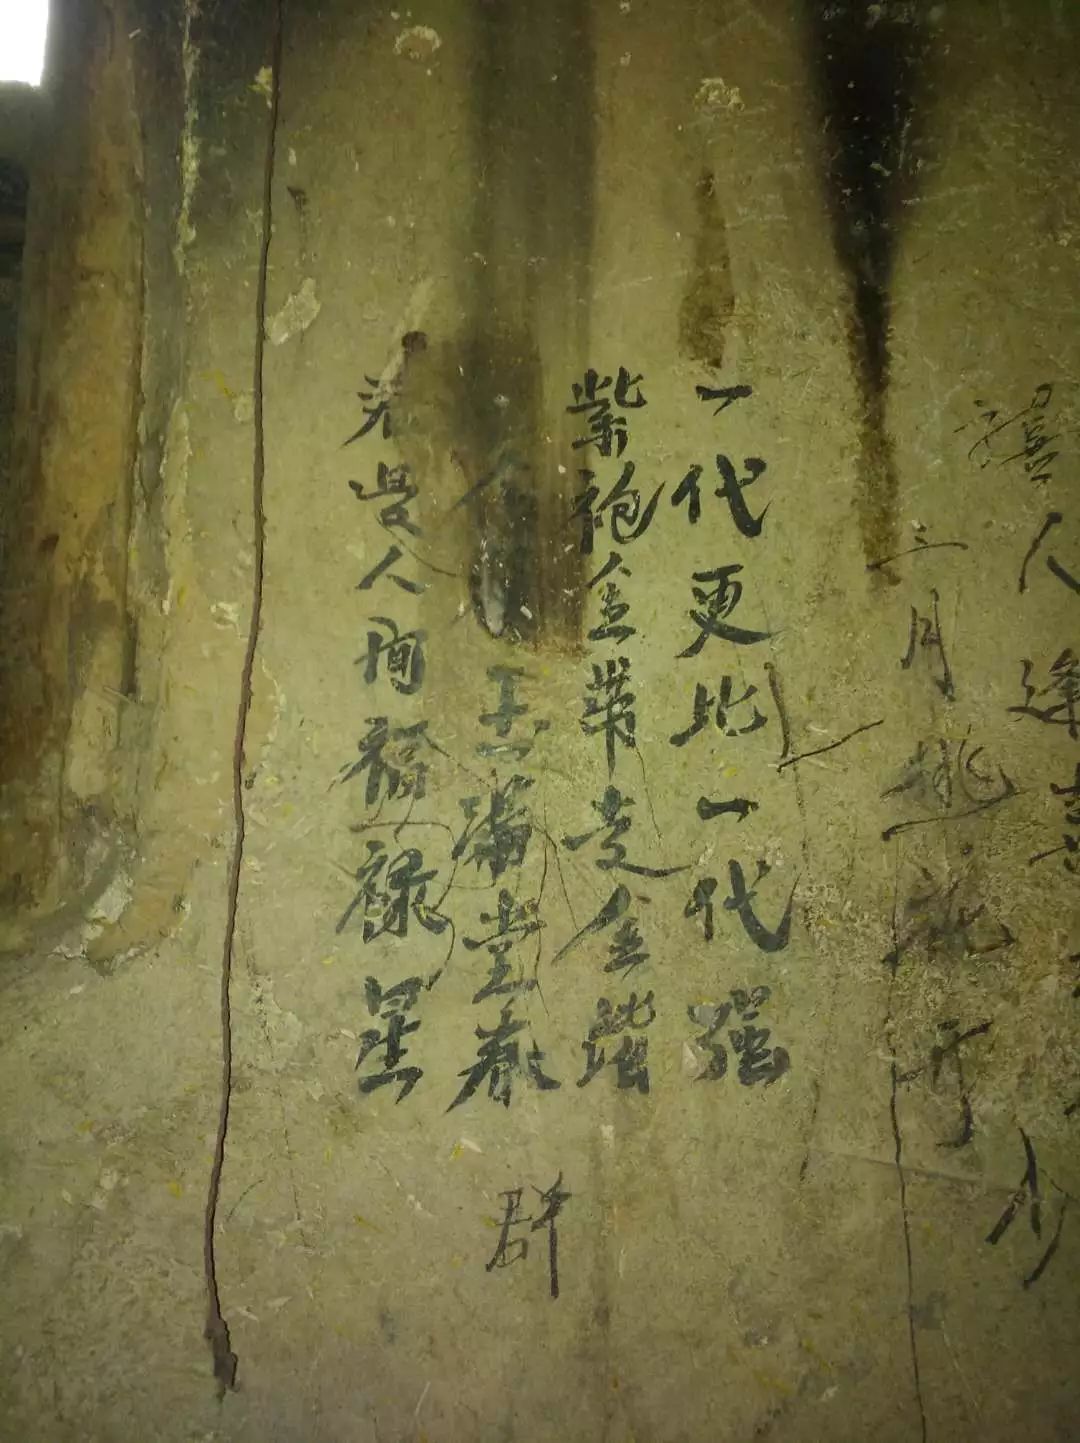 人逢喜
禧
三月桃花
一代更比一代强
紫袍金带金
金玉满堂春
人间福禄星
群